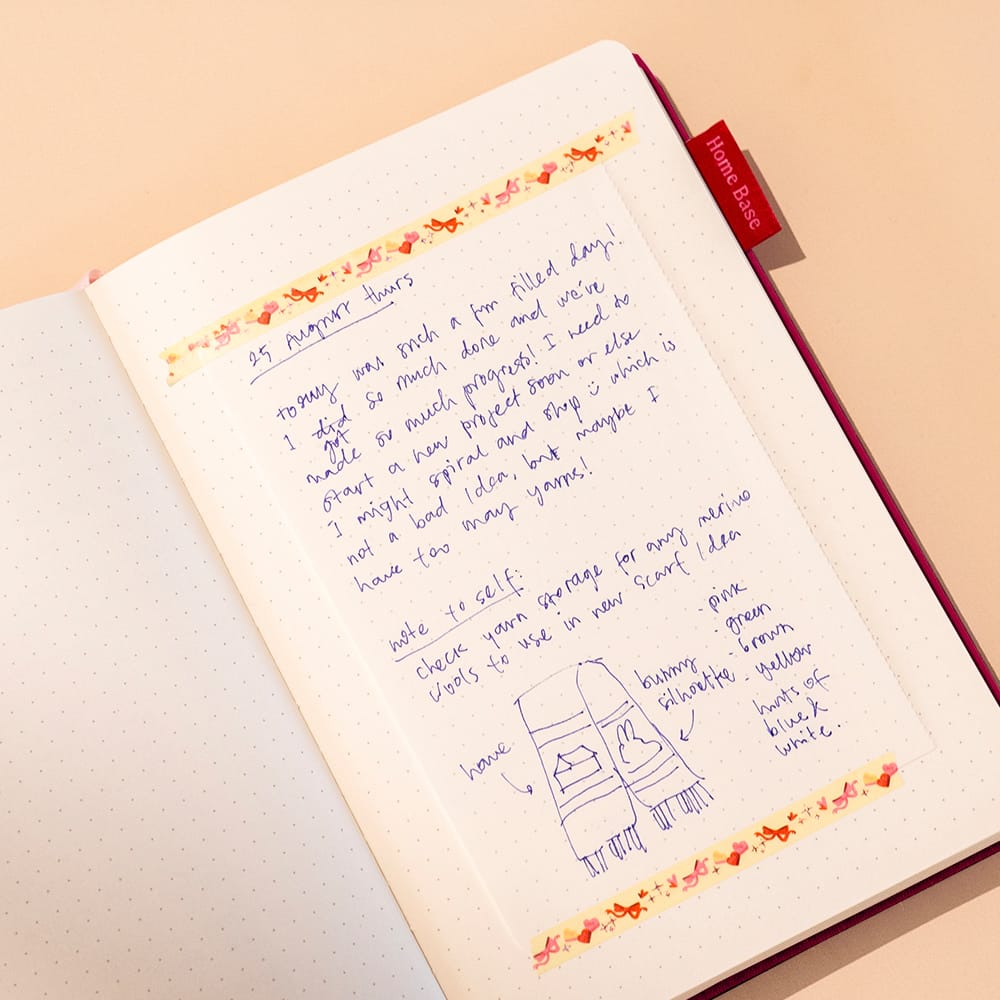 Home Base
25 August thurs
today was such a fun filled day!
I did so much done and we've
got
made so much progress! I need to
start a new project soon or else
I might spiral and shop :) which is
not a bad idea, but maybe I
have too many yarns!
note to self:
check yarn storage for any merino
wools to use in new scarf idea
- pink
- green
- brown
- yellow
hints of
blue &
white.
bunny
silhouette
home